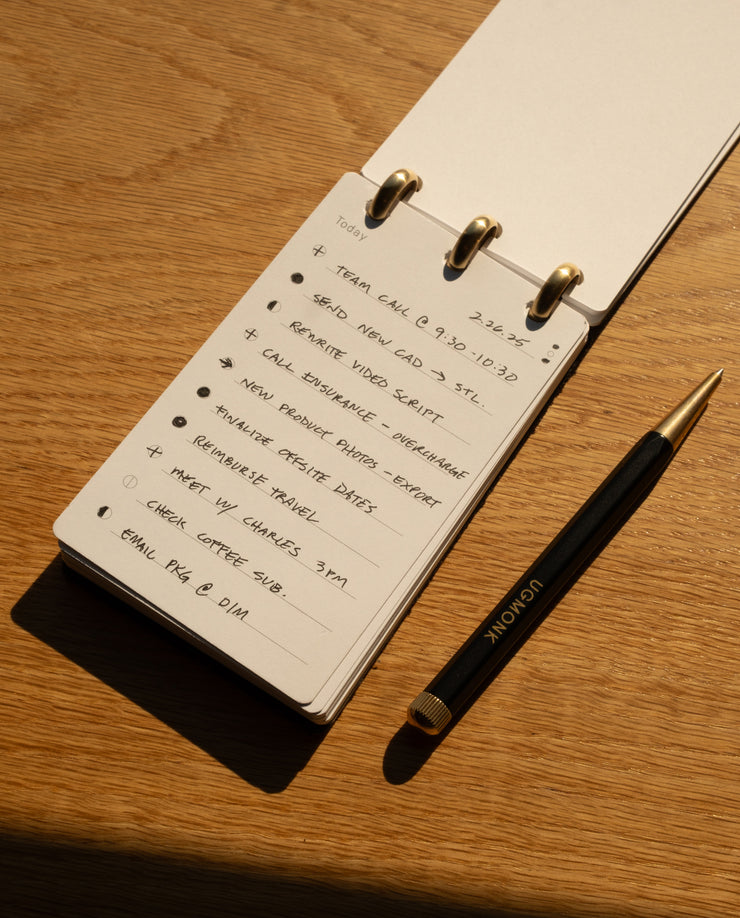 Today
2.26.25
TEAM CALL @ 9:30-10:30
SEND NEW CAD → STL.
REWRITE VIDEO SCRIPT
CALL INSURANCE - OVERCHARGE
NEW PRODUCT PHOTOS - EXPORT
FINALIZE OFFSITE DATES
REIMBURSE TRAVEL
MEET W/ CHARLES 3PM
CHECK COFFEE SUB.
EMAIL PKG @ DIM
UGMONK